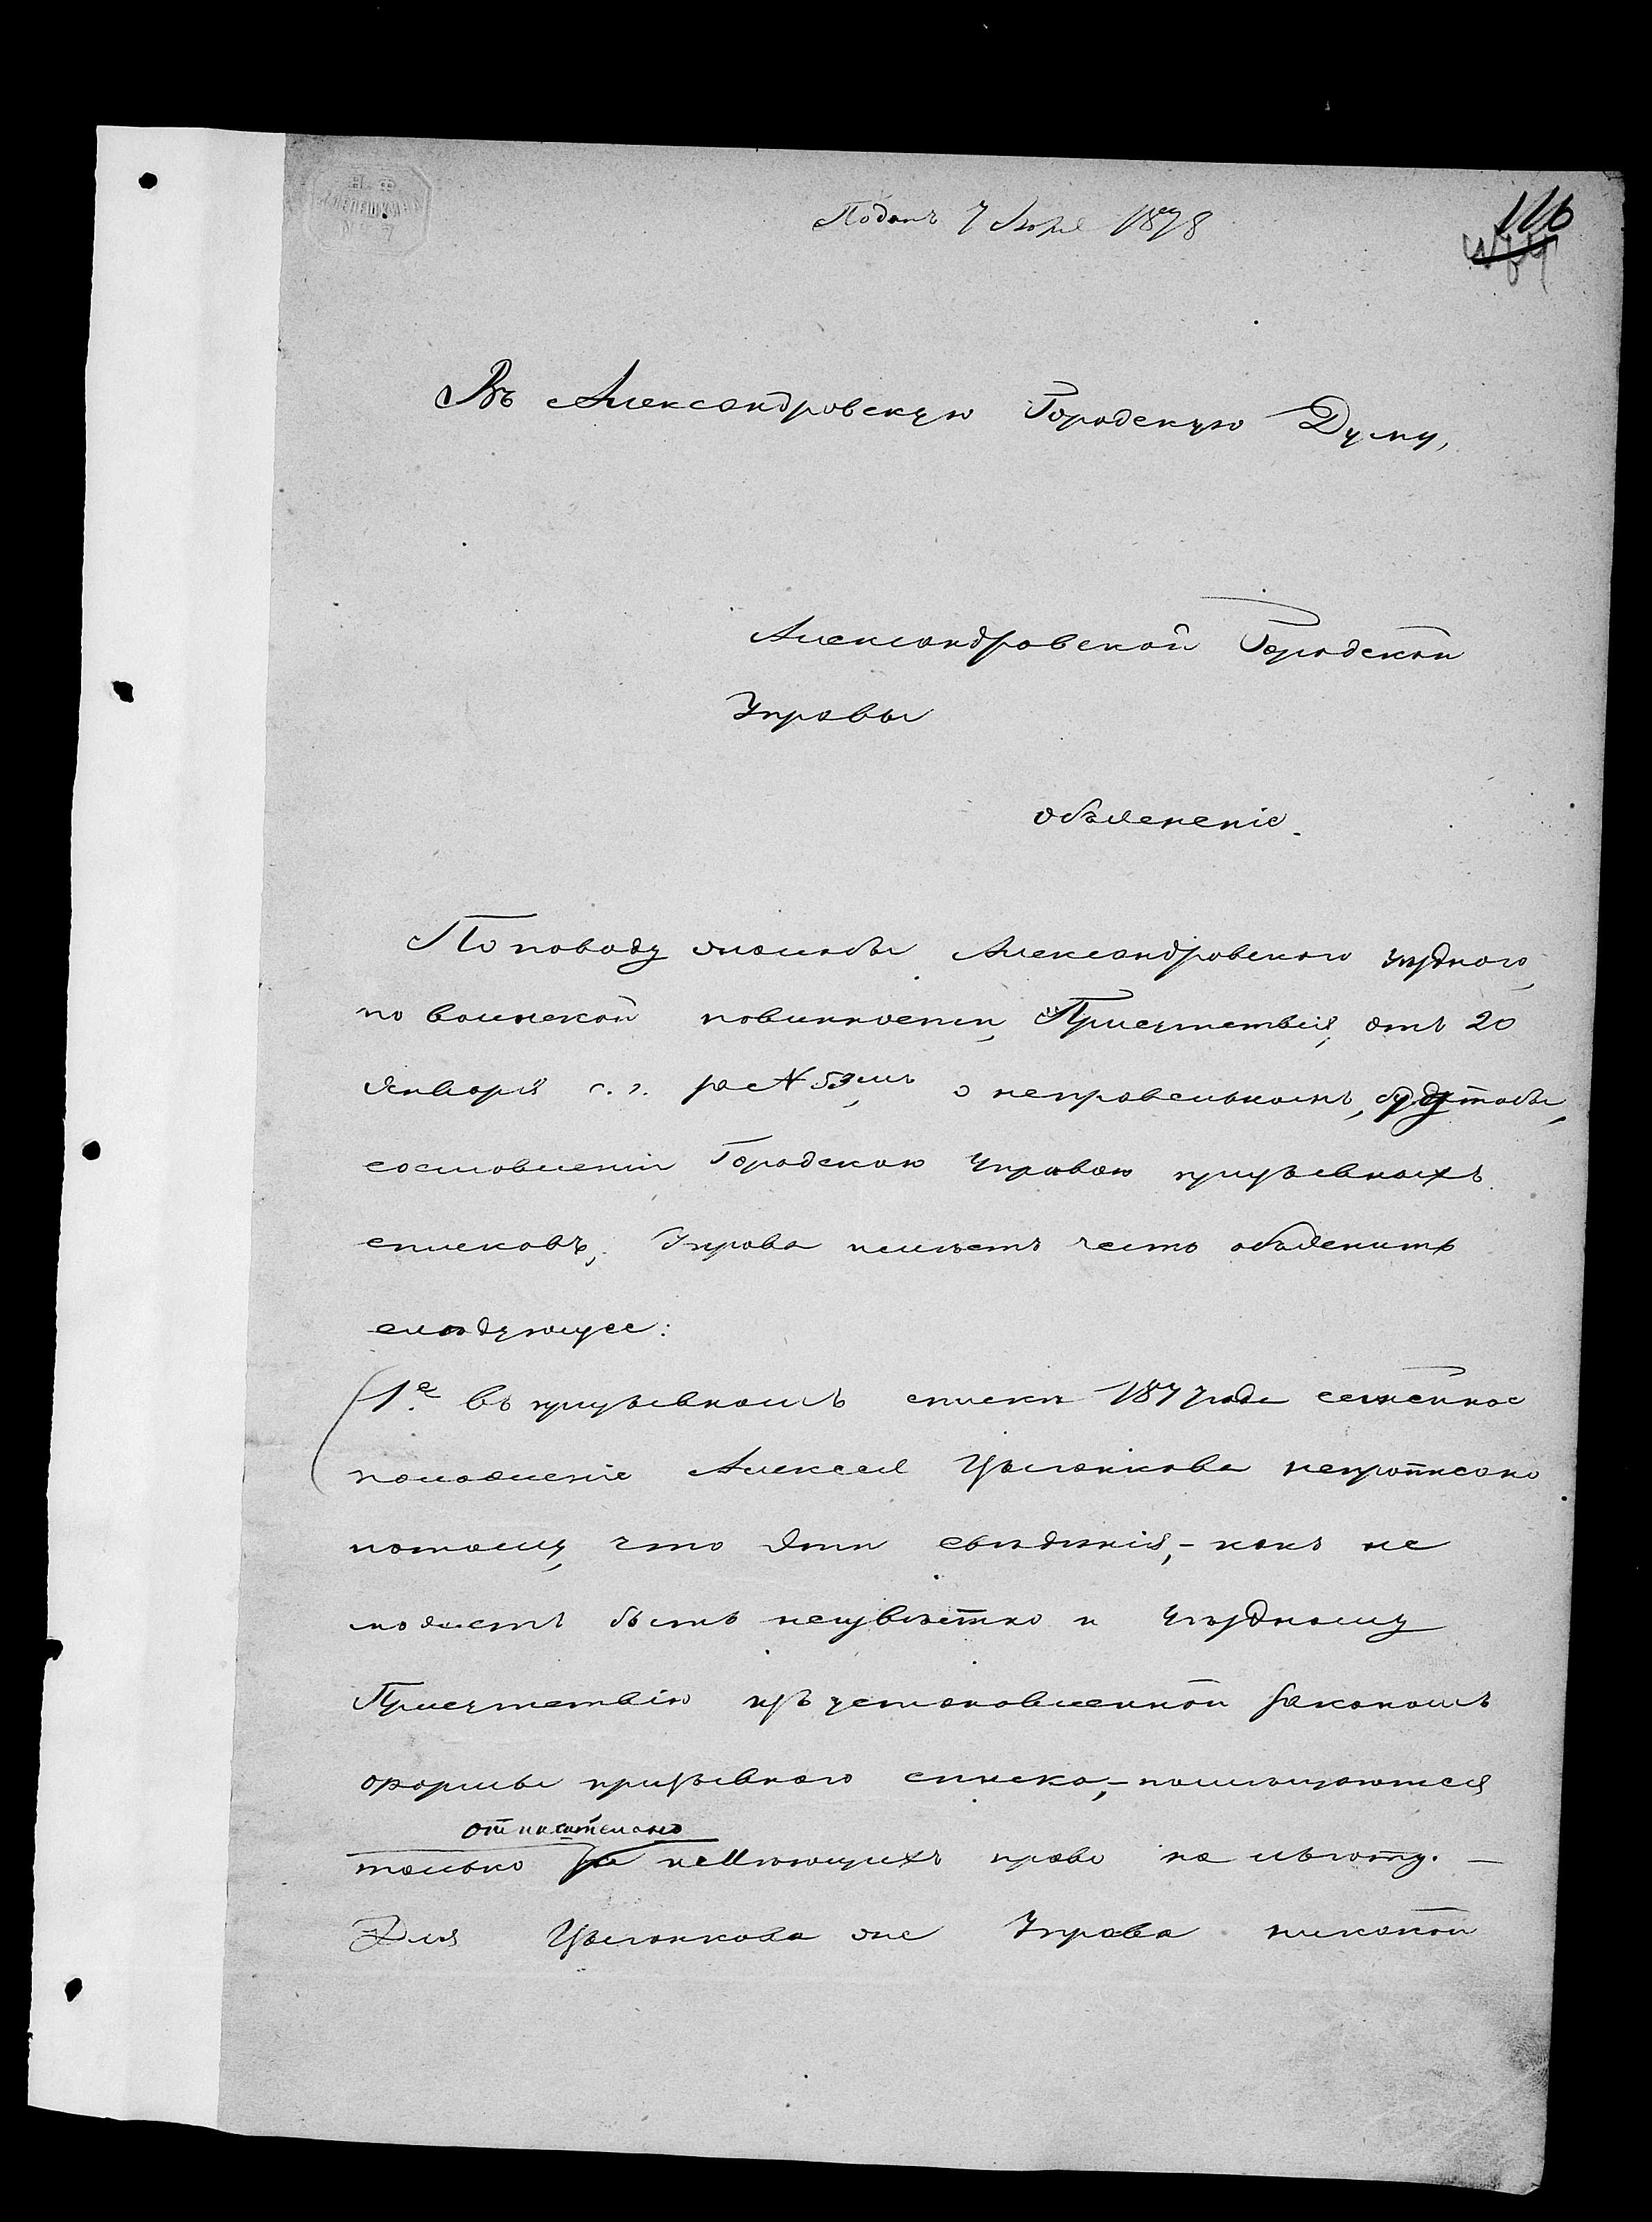 Поданъ 7 1878
116
Въ Александровскую Городскую Думу,
Александровской Городской
Управы
объясненіе.
По поводу жалобы Александровскаго уѣзднаго,
по воинской повинности, Присутствія, отъ 20
Января с. г. за № 53мъ, о неправильномъ, будтобы,
составленіи Городскою Управою призывныхъ
списковъ, Управа имѣетъ честь объяснить
слѣдующее:
1.е въ призывномъ списки 1877 года семейное
положеніе Алексея Цыганкова непрописано
потому, что эти свѣдѣнія, - какъ не
можетъ быть неизвѣстно и Уѣздному
Присутствію изъ установленной закономъ
формы призывнаго списка, - помѣщаются
относительно
только неИмѣющихъ право на льготу. —
Для Цыганкова же Управа никакой